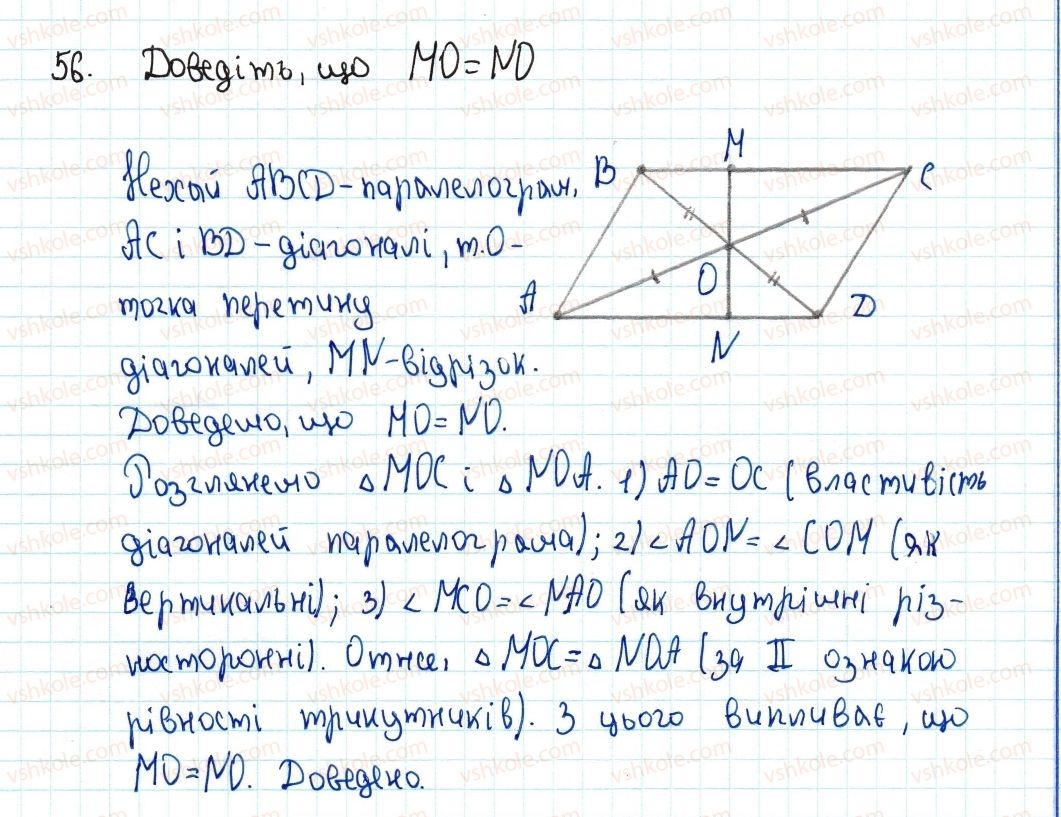 56. Доведіть, що MO=NO
Нехай ABCD-паралелограм,
AC і BD-діагоналі, т.O-
точка перетину
діагоналей, MN-відрізок.
Доведемо, що MO=NO.
Розглянемо △MOC і △NOA. 1) AO=OC (властивість
діагоналей паралелограма); 2) ∠AON=∠COM (як
вертикальні); 3) ∠MCO=∠NAO (як внутрішні різ-
носторонні). Отже, △MOC=△NOA (за II ознакою
рівності трикутників). З цього випливає, що
MO=NO. Доведено.
B M C
A O D
N
vshkole.com